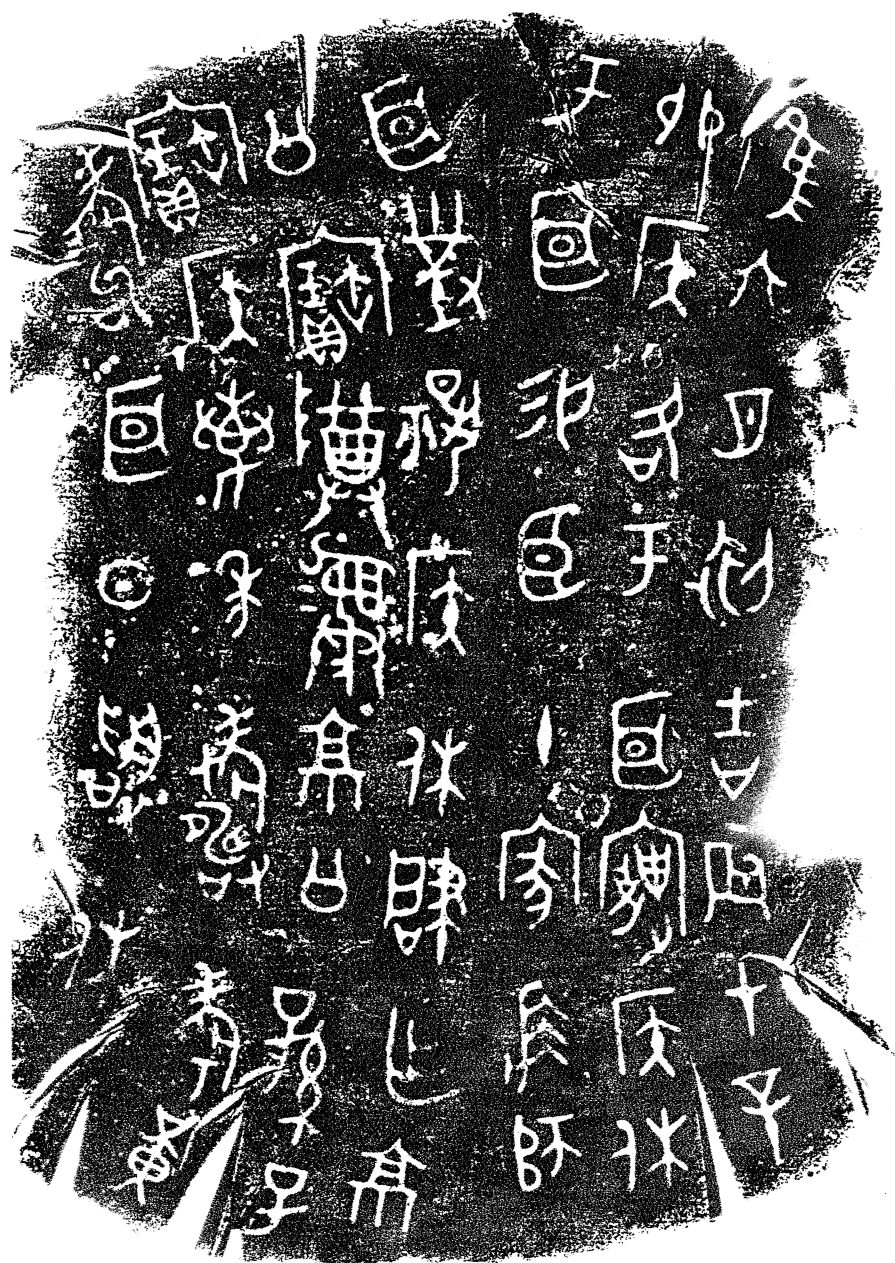 隹六月初吉辰才辛
卯侯各于耳侯休
于耳易臣十家長師
耳對揚侯休肇乍京
公寶尊彝京公孫子
寶侯萬年壽考黃
耇耳日受休